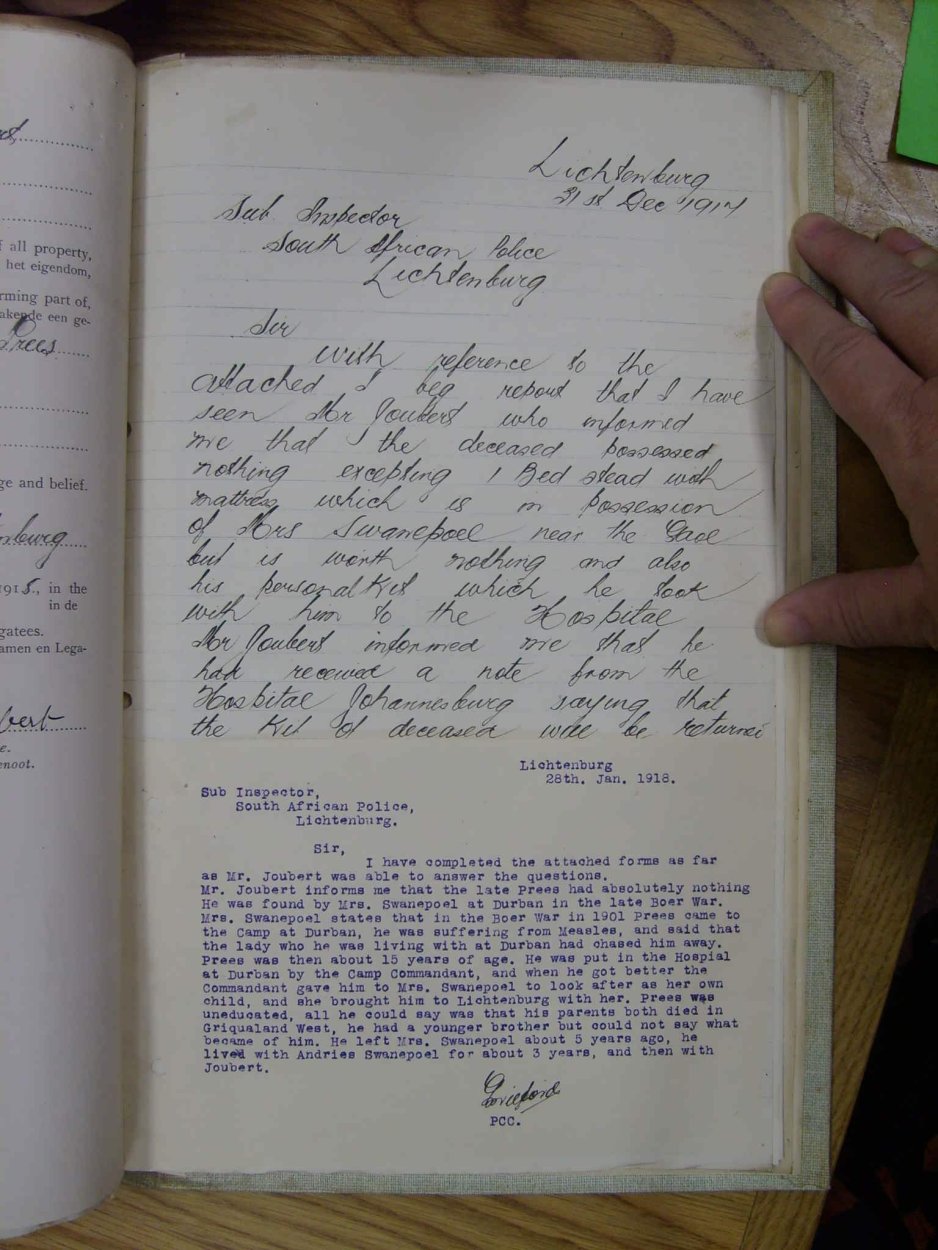 f all property,
het eigendom,
rming part of,
akende een ge-
Prees
ge and belief.
nburg
1915, in the
in de
gatees.
amen en Lega-
bert
e.
enoot.
Lichtenburg
31st Dec 1917
Sub Inspector
South African Police
Lichtenburg
Sir
With reference to the
attached I beg report that I have
seen Mr Joubert who informed
me that the deceased possessed
nothing excepting 1 Bed stead with
mattress which is in possession
of Mrs Swanepoel near the Gaol
but is worth nothing and also
his personal Kit which he took
with him to the Hospital
Mr Joubert informed me that he
had received a note from the
Hospital Johannesburg saying that
the Kit of deceased will be returned
Lichtenburg
28th. Jan. 1918.
Sub Inspector,
South African Police,
Lichtenburg.
Sir,
I have completed the attached forms as far
as Mr. Joubert was able to answer the questions.
Mr. Joubert informs me that the late Prees had absolutely nothing
He was found by Mrs. Swanepoel at Durban in the late Boer War.
Mrs. Swanepoel states that in the Boer War in 1901 Prees came to
the Camp at Durban, he was suffering from Measles, and said that
the lady who he was living with at Durban had chased him away.
Prees was then about 15 years of age. He was put in the Hospial
at Durban by the Camp Commandant, and when he got better the
Commandant gave him to Mrs. Swanepoel to look after as her own
child, and she brought him to Lichtenburg with her. Prees was
uneducated, all he could say was that his parents both died in
Griqualand West, he had a younger brother but could not say what
became of him. He left Mrs. Swanepoel about 5 years ago, he
lived with Andries Swanepoel for about 3 years, and then with
Joubert.
PCC.